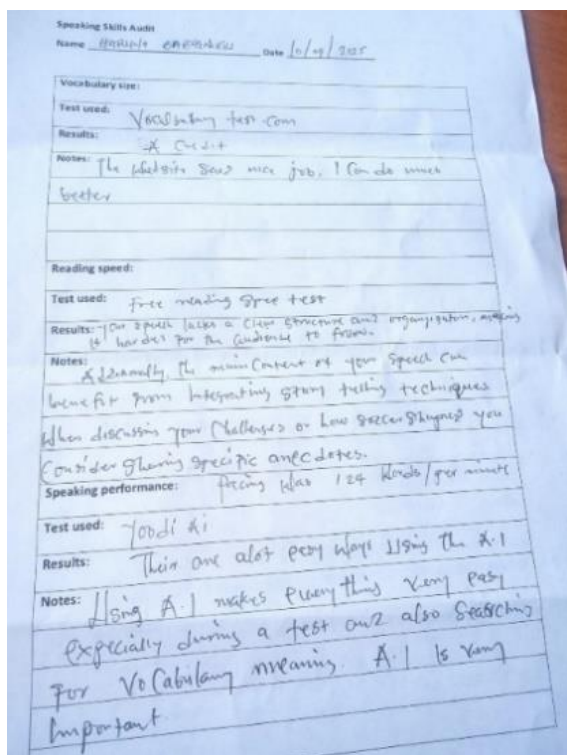 Speaking Skills Audit
Name Date 10/09/2025
Vocabulary size:
Test used: Vocabulary test.com
Results: A Credit
Notes: The website says nice job, I can do much
better
Reading speed:
Test used: free reading test
Results: your speech lacks a clear structure and organization, making
it harder for the audience to
Notes: Additionally, the main content of your speech can
benefit from integrating story telling techniques
When discussing your challenges or how soccer shaped you
Consider sharing specific anecdotes.
Speaking performance: Pacing was 124 words/per minute
Test used: Yoodi Ai
Results: Their are alot easy ways Using the A.I
Notes: Using A.I makes everything very easy
expecially during a test and also Searching
For Vocabulary meaning. A.I Is very
Important